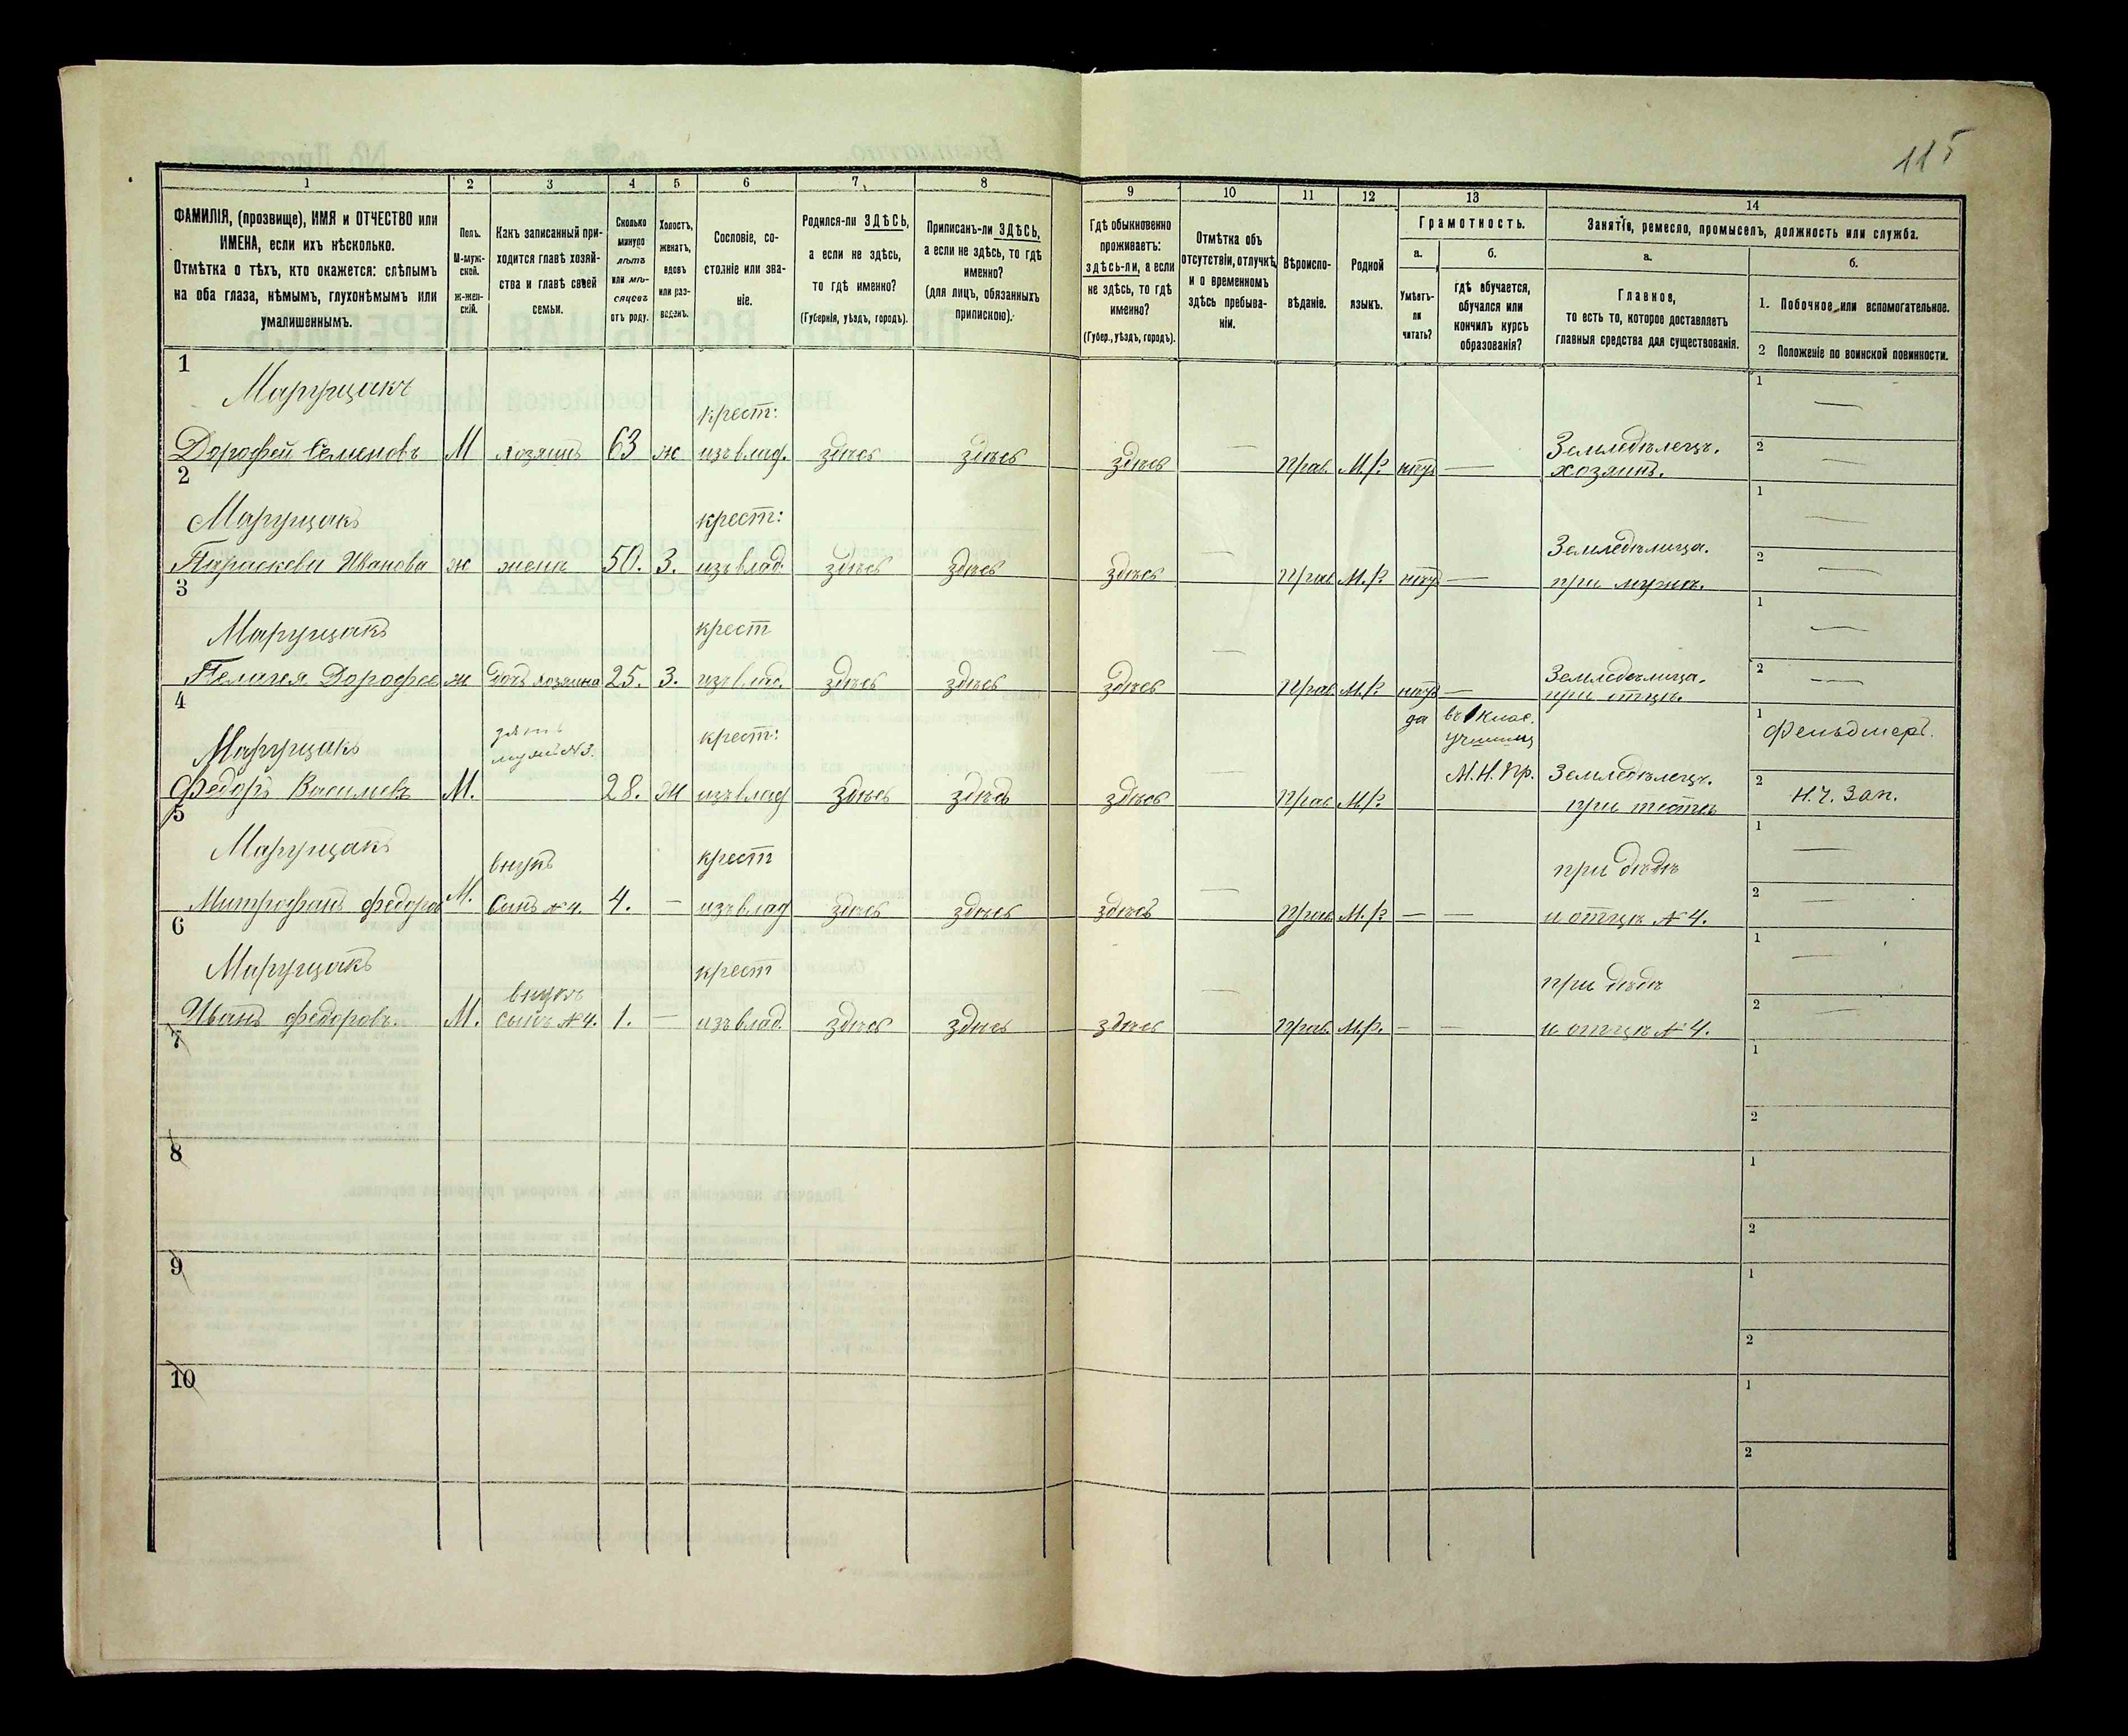 115
1 2 3 4 5 6 7 8 9 10 11 12 13 14
ФАМИЛІЯ, (прозвище), ИМЯ и ОТЧЕСТВО или
ИМЕНА, если ихъ нѣсколько.
Отмѣтка о тѣхъ, кто окажется: слѣпымъ
на оба глаза, нѣмымъ, глухонѣмымъ или
умалишеннымъ.
Полъ.
М-муж-
ской.
ж-жен-
скій.
Какъ записанный при-
ходится главѣ хозяй-
ства и главѣ своей
семьи.
Сколько
минуло
лѣтъ
или мѣ-
сяцевъ
отъ роду.
Холостъ,
женатъ,
вдовъ
или раз-
веденъ.
Сословіе, со-
стояніе или зва-
ніе.
Родился-ли ЗДѢСЬ,
а если не здѣсь,
то гдѣ именно?
(Губернія, уѣздъ, городъ).
Приписанъ-ли ЗДѢСЬ,
а если не здѣсь, то гдѣ
именно?
(для лицъ, обязанныхъ
припискою).
Гдѣ обыкновенно
проживаетъ:
здѣсь-ли, а если
не здѣсь, то гдѣ
именно?
(Губер., уѣздъ, городъ).
Отмѣтка объ
отсутствіи, отлучкѣ
и о временномъ
здѣсь пребыва-
ніи.
Вѣроиспо-
вѣданіе.
Родной
языкъ.
Грамотность.
а.
Умѣетъ-
ли
читать?
б.
гдѣ обучается,
обучался или
кончилъ курсъ
образованія?
Занятіе, ремесло, промыселъ, должность или служба.
а.
Главное,
то есть то, которое доставляетъ
главныя средства для существованія.
б.
1. Побочное или вспомогательное.
2 Положеніе по воинской повинности.
1
Марущакъ
крест:
1 —
Дорофей Семеновъ М хозяинъ 63 ж изъ влад. здѣсь здѣсь здѣсь — прав. М.Р. нѣтъ — Земледѣлецъ.
хозяинъ.
2 —
2
Марущакъ
крест:
1 —
Параскева Иванова ж жена 50. З. изъ влад. здѣсь здѣсь здѣсь — прав М.Р. нѣтъ — Земледѣлица.
при мужѣ.
2 —
3
Марущакъ
крест
1 —
Пелагея Дорофе ж дочь хозяина 25. З. изъ влад. здѣсь здѣсь здѣсь — прав. М.Р. нѣтъ — Земледѣлица.
при отцѣ.
2 —
4
Марущакъ
зять
мужъ №3.
крест:
да въ 1 клас.
училищ
М.Н.Пр.
1 Фельдшеръ.
Федоръ Васильевъ М. 28. Ж изъ влад здѣсь здѣсь здѣсь — прав М.Р. Земледѣлецъ.
при тестѣ
2 Н.Ч. Зап.
5
Марущакъ
внукъ
крест
при дѣдѣ
1 —
Митрофанъ Федоров М. Сынъ №4. 4. — изъ влад здѣсь здѣсь здѣсь — прав. М.Р — — и отцѣ №4.
2 —
6
Марущакъ
внукъ
крест
при дѣдѣ
1 —
Иванъ Федоровъ. М. сынъ №4. 1. — изъ влад. здѣсь здѣсь здѣсь — прав. М.Р. — — и отцѣ №4.
2 —
7
1
2
8
1
2
9
1
2
10
1
2